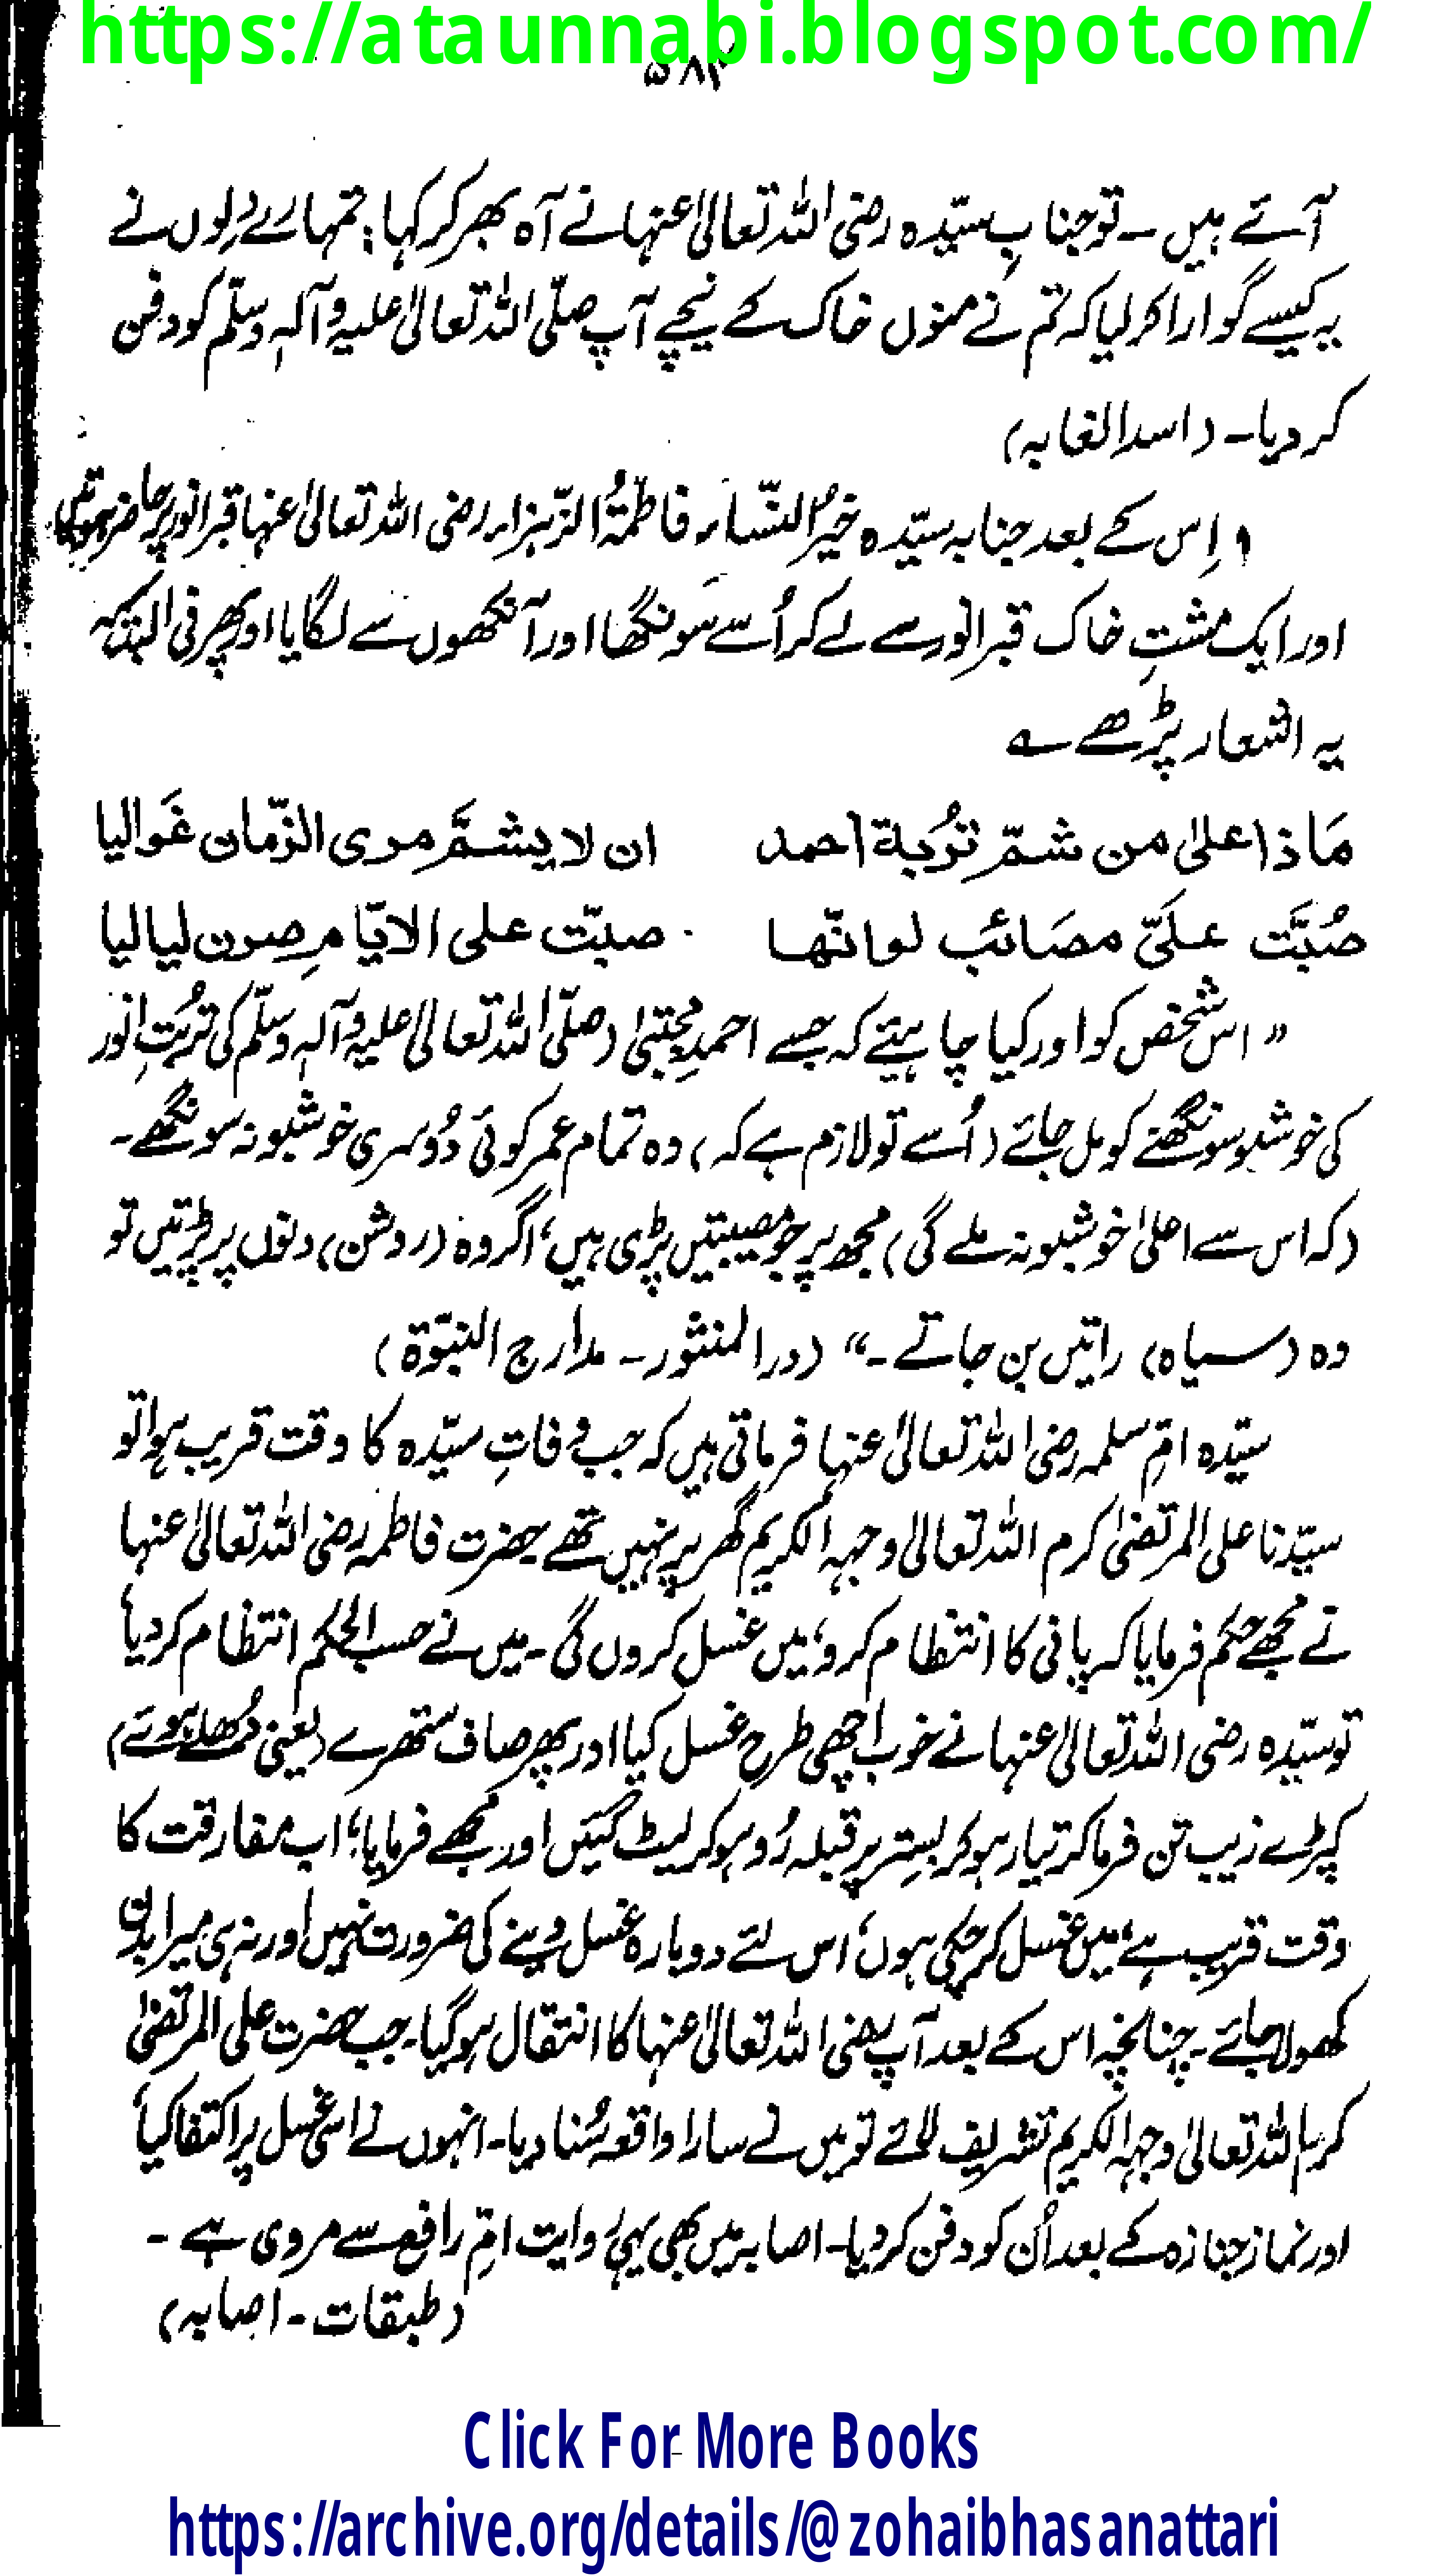 https://ataunnabi.blogspot.com/
۵۸۴
آتے ہیں ۔ تو جنابِ سیّدہ رضی اللہ تعالیٰ عنہا نے آہ بھر کر کہا: تمہارے دِلوں نے
یہ کیسے گوارا کر لیا کہ تم نے منوں خاک کے نیچے آپ صلّی اللہ تعالیٰ علیہ وآلہٖ وسلّم کو دفن
کر دیا۔ (اسد الغابہ)
اِس کے بعد جنابہ سیّدہ خیرُ النّساء فاطمۃُ الزّہراء رضی اللہ تعالیٰ عنہا قبرِ انور پر حاضر ہوئیں
اور ایک مشتِ خاک قبر انور سے لے کر اُسے سونگھا اور آنکھوں سے لگایا اور پھر فی البدیہہ
یہ اشعار پڑھے ؎
مَاذا علیٰ من شمّ تُربة احمد ان لا یشمَّ مدی الزّمان غَوالیا
صُبَّت علَیَّ مصَائب لو انّها صبّت علی الایّام صرن لیالیا
” اس شخص کو اور کیا چاہیئے کہ جسے احمدِ مجتبیٰ (صلّی اللہ تعالیٰ علیہ وآلہٖ وسلّم کی تُربتِ انور
کی خوشبو سونگھنے کو مل جائے (اُسے تو لازم ہے کہ) وہ تمام عمر کوئی دُوسری خوشبو نہ سونگھے ۔
(کہ اس سے اعلیٰ خوشبو نہ ملے گی) مجھ پر جو مصیبتیں پڑی ہیں، اگر وہ (روشن) دنوں پر پڑتیں تو
وہ (سیاہ) راتیں بن جاتے ۔“ (در المنثور ۔ مدارج النبوّۃ)
سیّدہ امِّ سلمہ رضی اللہ تعالیٰ عنہا فرماتی ہیں کہ جب وفاتِ سیّدہ کا وقت قریب ہوا تو
سیّدنا علی المرتضیٰ کرم اللہ تعالیٰ وجہہ الکریم گھر پر نہیں تھے حضرت فاطمہ رضی اللہ تعالیٰ عنہا
نے مجھے حکم فرمایا کہ پانی کا انتظام کرو، میں غسل کروں گی ۔ میں نے حسب الحکم انتظام کر دیا،
تو سیّدہ رضی اللہ تعالیٰ عنہا نے خوب اچھی طرح غسل کیا اور پھر صاف ستھرے (یعنی دُھلے ہوئے)
کپڑے زیب تن فرما کر تیار ہو کر بستر پر قبلہ رُو ہو کر لیٹ گئیں اور مجھے فرمایا؛ اب مفارقت کا
وقت قریب ہے، میں غسل کر چکی ہوں، اس لئے دوبارہ غسل دینے کی ضرورت نہیں اور نہ ہی میرا بدن
کھولا جائے ۔ چنانچہ اس کے بعد آپ رضی اللہ تعالیٰ عنہا کا انتقال ہو گیا ۔ جب حضرت علی المرتضیٰ
کرم اللہ تعالیٰ وجہہ الکریم تشریف لائے تو میں نے سارا واقعہ سُنا دیا ۔ انہوں نے اسی غسل پر اکتفا کیا،
اور نماز جنازہ کے بعد اُن کو دفن کر دیا ۔ اصابہ میں بھی یہی روایت امِّ رافع سے مروی ہے ۔
(طبقات ۔ اصابہ)
Click For More Books
https://archive.org/details/@zohaibhasanattari